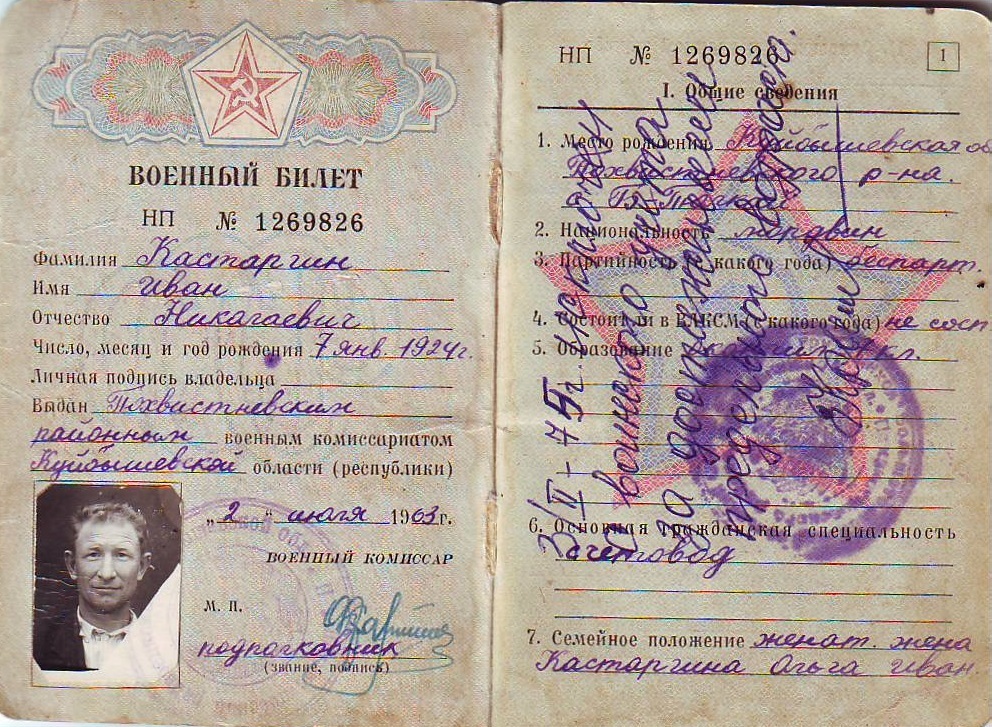 ВОЕННЫЙ БИЛЕТ
НП № 1269826
Фамилия Кастаргин
Имя Иван
Отчество Никалаевич
Число, месяц и год рождения 7 янв 1924г.
Личная подпись владельца
Выдан Похвистневским
районным военным комиссариатом
Куйбышевской области (республики)
„2“ июля 1963г.
ВОЕННЫЙ КОМИССАР
М. П.
подполковник
(звание, подпись)
НП № 1269826
1
I. Общие сведения
1. Место рождения Куйбышевская об
Похвистневского р-на.
2. Национальность мордвин
3. Партийность (с какого года) беспарт.
4. Состоит ли в ВЛКСМ (с какого года) не сост
5. Образование кл.
6. Основная гражданская специальность
счетовод
7. Семейное положение женат. жена
Кастаргина Ольга Иван
3/II-75г. исключен
с воинского учета
за достижением
предельного возраста.